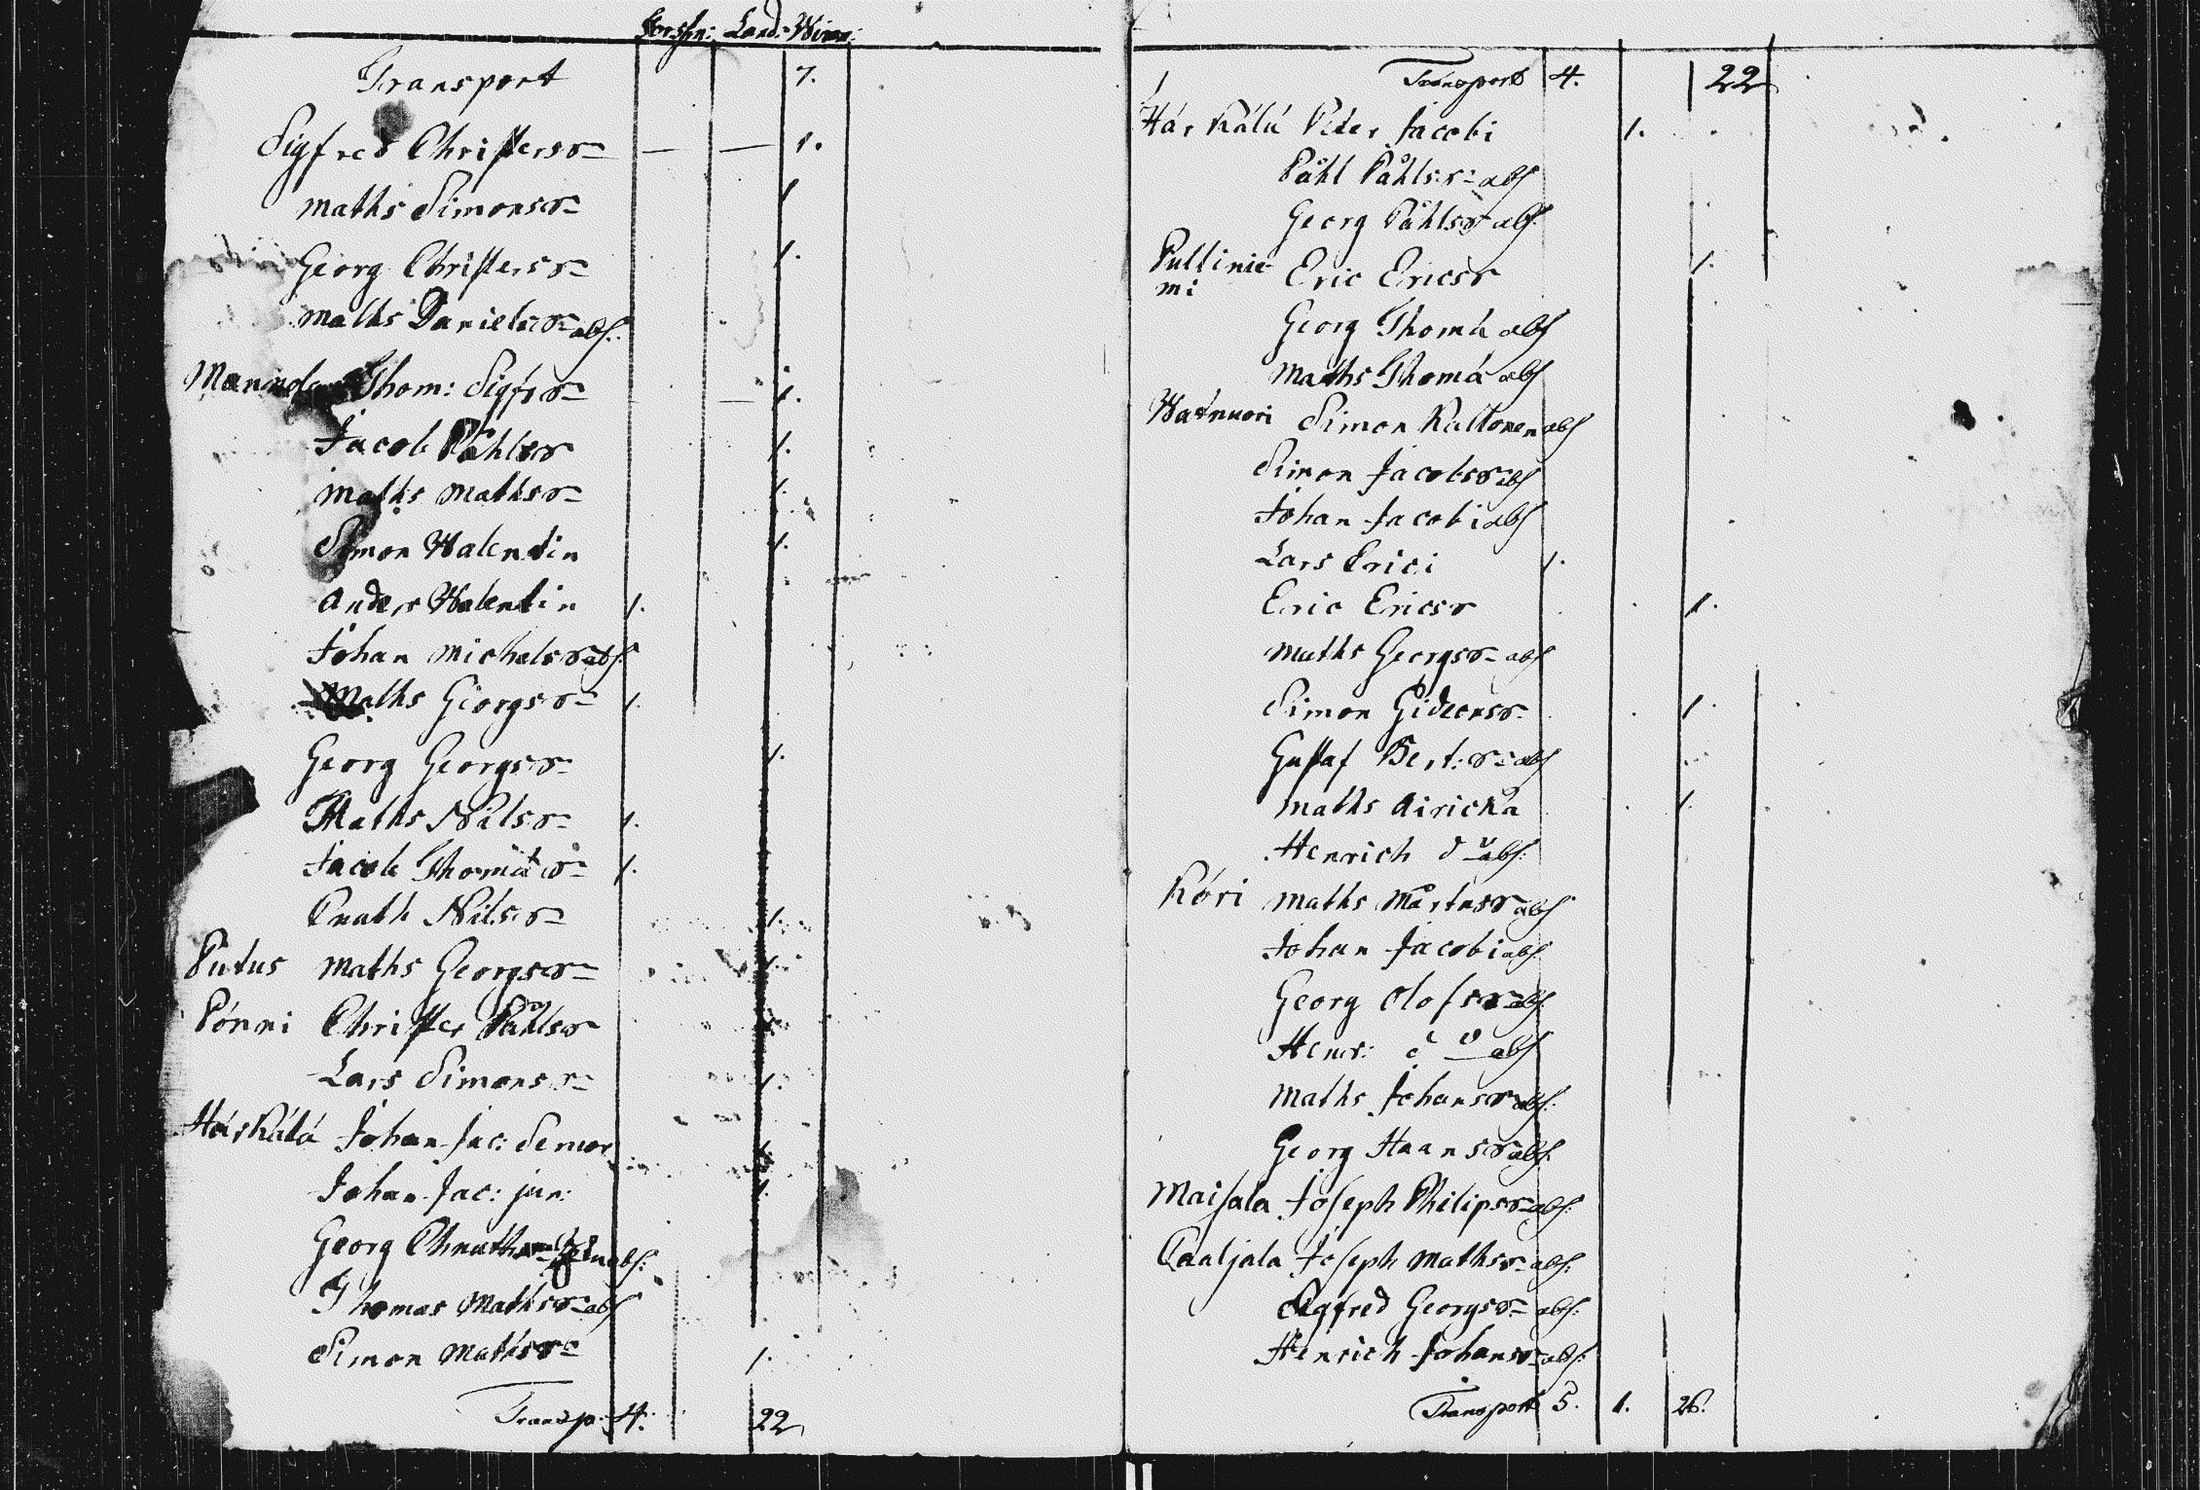 Forspn: Land: Winn:
Transport 7.
Sigfred Christersr — — 1.
Maths Simonsr 1
Georg Christersr 1.
Maths Danielsr abs:
Thom: Sigfrsr — 1.
Jacob Påhlsr 1.
Maths Mathsr 1.
Simon Walentin 1.
Anders Walentin 1.
Johan Michelsr abs:
Maths Giorgsr 1.
Georg Georgsr 1.
Maths Nilsr 1.
Jacob Thomæsr 1.
Cnuth Nilsr 1.
Putus Maths Georgsr 1.
Pönni Christer Påhlsr 1.
Lars Simonsr 1.
Härkälä Johan Jac: Senior 1.
Johan Jac: jun: 1.
Georg Chnuths abs:
Thomas Mathsr abs
Simon Mathsr 1.
Transp: 4. 22
Transport 4. 22
Härkälä Peter Jacobi 1.
Påhl Påhlsr abs
Georg Påhlsr abs
Pullinie-
mi Eric Ericsr 1.
Georg Thomæ abs
Maths Thomæ abs
Watnuori Simon Kultonen abs
Simon Jacobsr abs
Johan Jacobi abs
Lars Erici 1.
Eric Ericsr 1.
Maths Georgsr abs
Simon Gideonsr 1.
Gustaf Bert:sr abs
Maths Airickå 1.
Henrich do abs:
Kóri Maths Mårtnsr abs
Johan Jacobi abs
Georg Olofsr abs
Henr: do abs
Maths Johansr abs:
Georg Haansr abs:
Maisala Joseph Philipsr abs:
Caaljala Joseph Mathsr abs:
Sigfred Georgsr abs:
Henrich Johansr abs:
Transport 5. 1. 26.